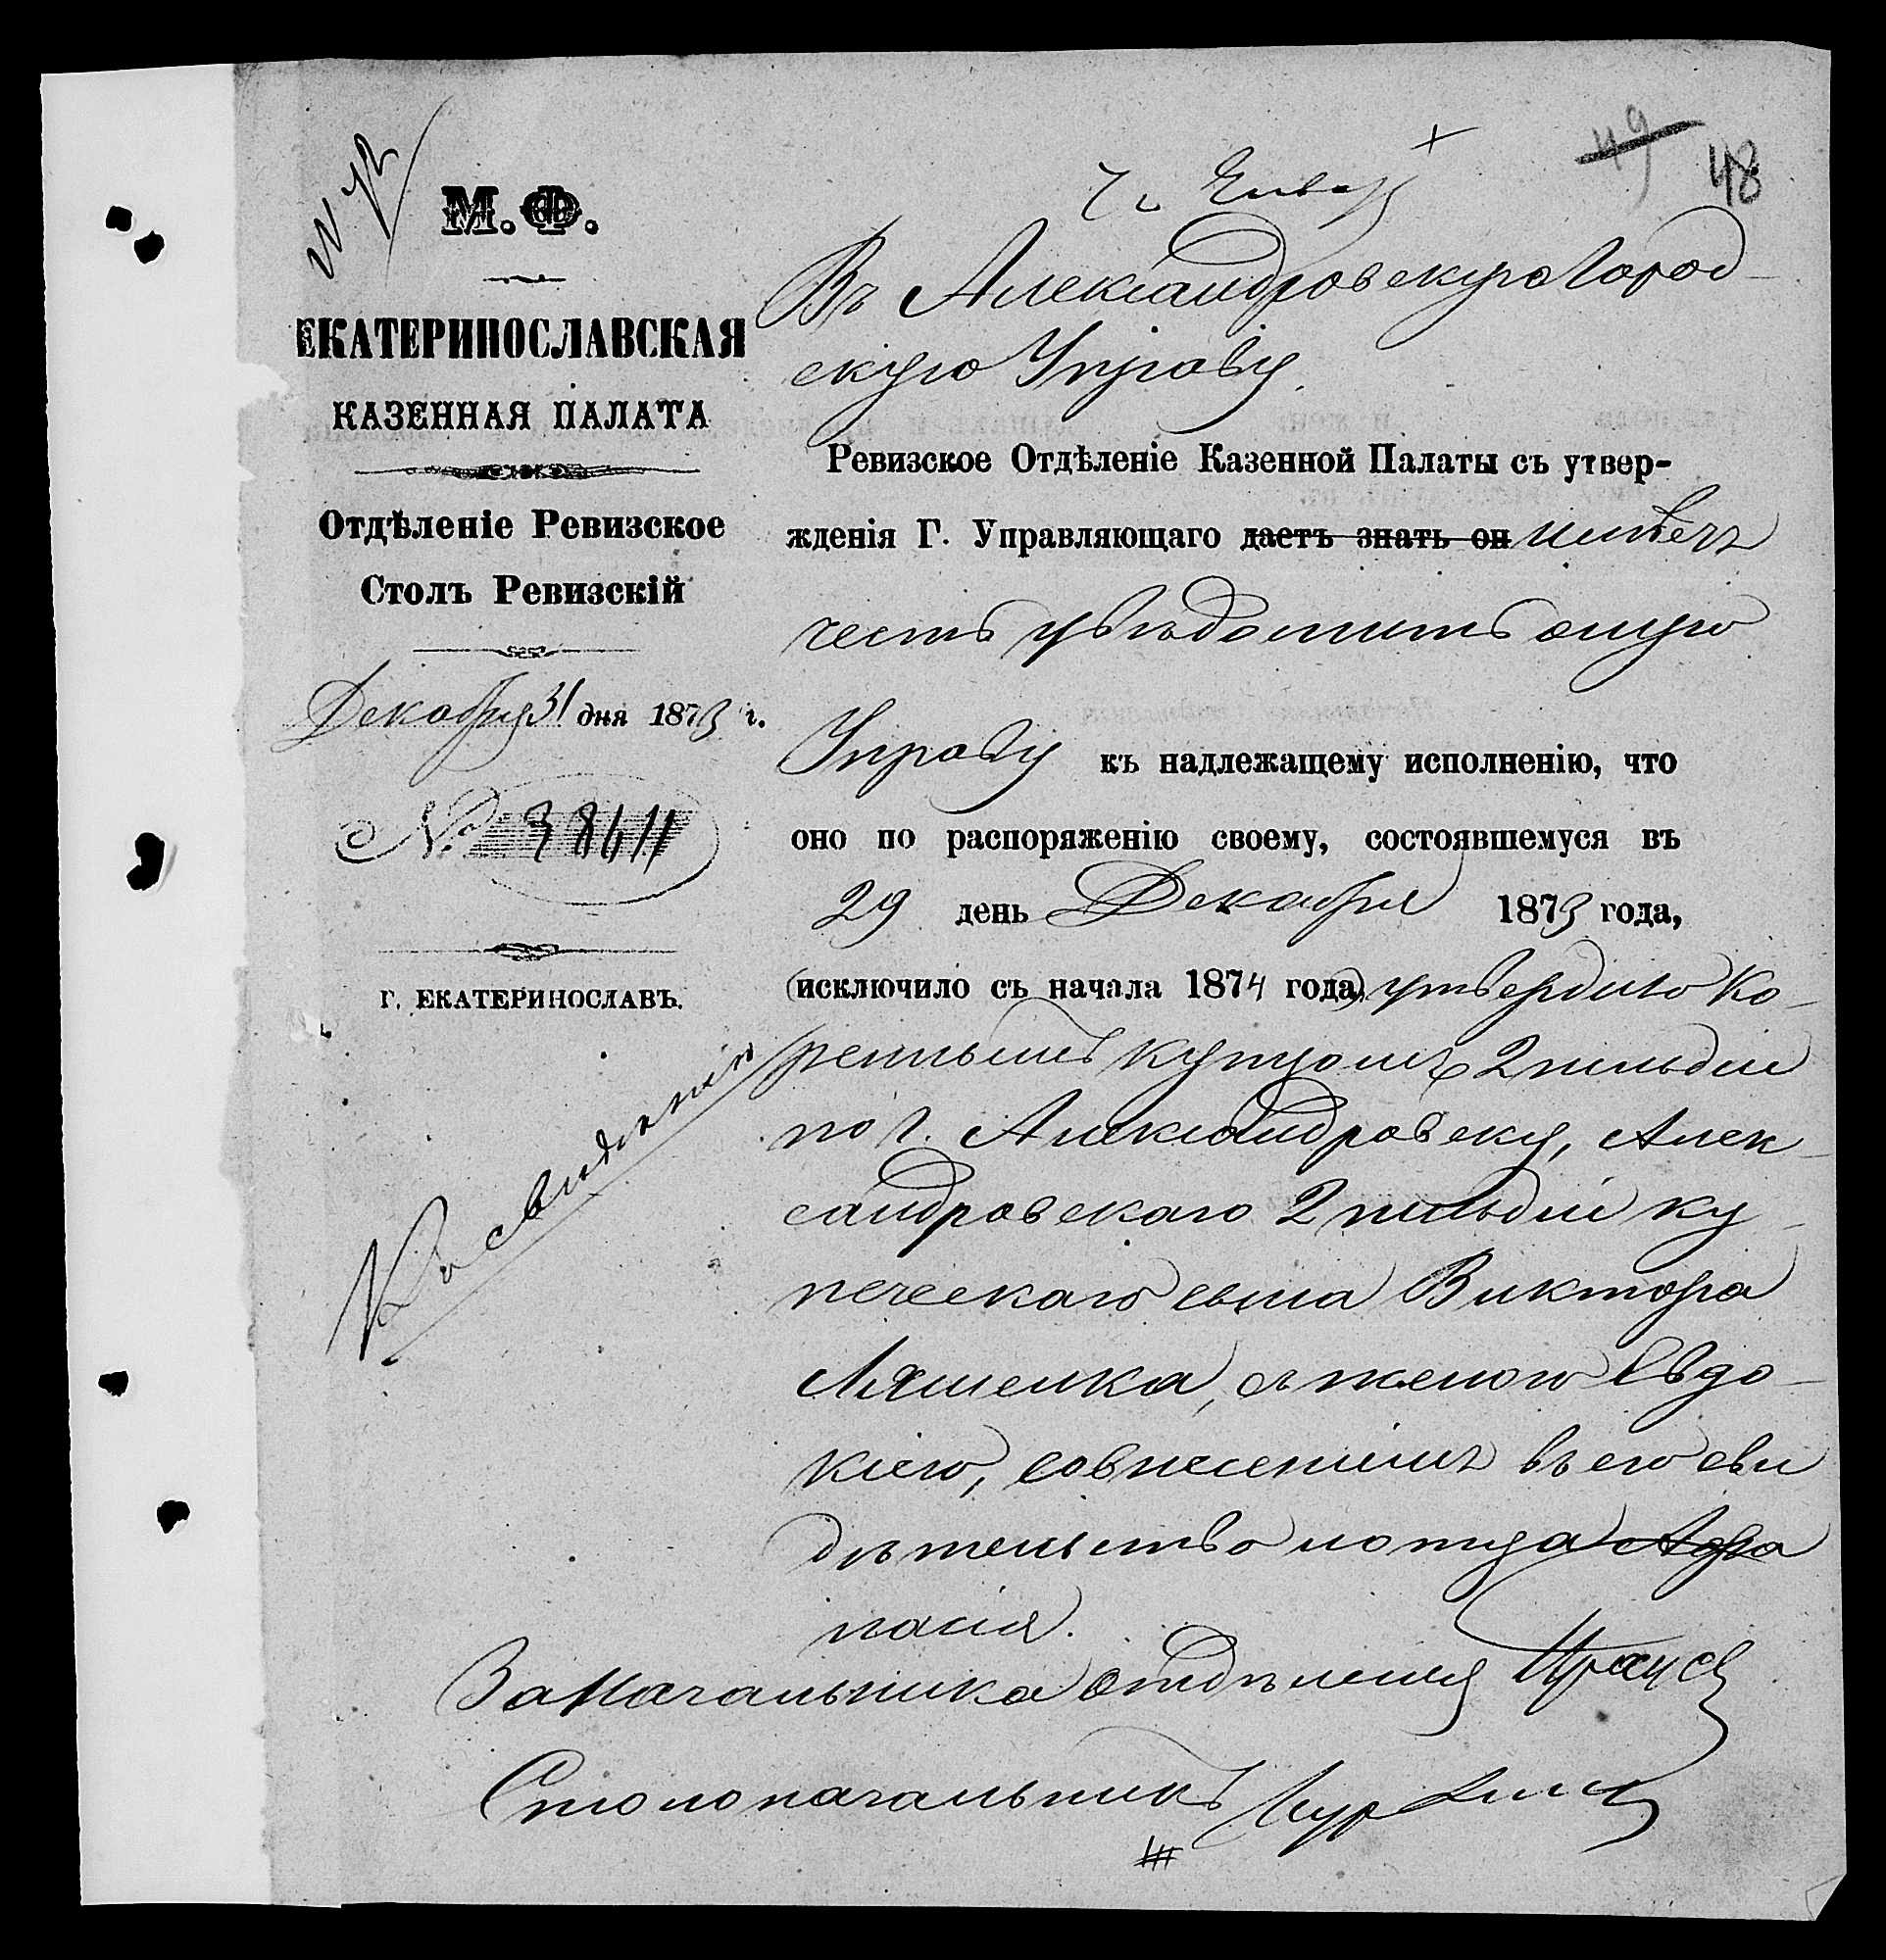 49 48
7 г. Январ
М. Ф.
ЕКАТЕРИНОСЛАВСКАЯ
КАЗЕННАЯ ПАЛАТА
Отдѣленіе Ревизское
Столъ Ревизскій
Декабря 31 дня 1873 г.
№ 38611
Г. ЕКАТЕРИНОСЛАВЪ.
Къ свѣдѣнію
Въ Александровскую Город-
скую Управу
Ревизское Отдѣленіе Казенной Палаты съ утвер-
жденія Г. Управляющаго даетъ знать он имѣетъ
честь увѣдомить оную
Управу къ надлежащему исполненію, что
оно по распоряженію своему, состоявшемуся въ
29 день Декабря 1873 года,
(исключило съ начала 1874 года) утвердило ко-
реннымъ купцомъ 2 гильдіи
по г. Александровску, Алек-
сандровскаго 2 гильдіи ку-
печескаго сына Виктора
Ляшенка, съ женою Евдо-
кіею, совнесеніемъ въ его сви
дѣтельство и отца Афа
насія.
За Начальника Отдѣленія
Столоначальникъ